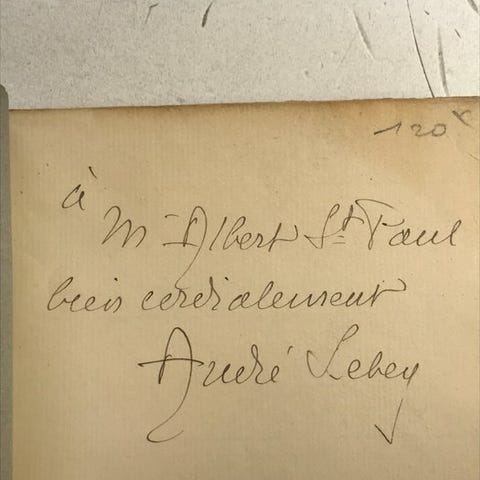 120 x
à
M. Albert St Paul
bien cordialement
André Lebey